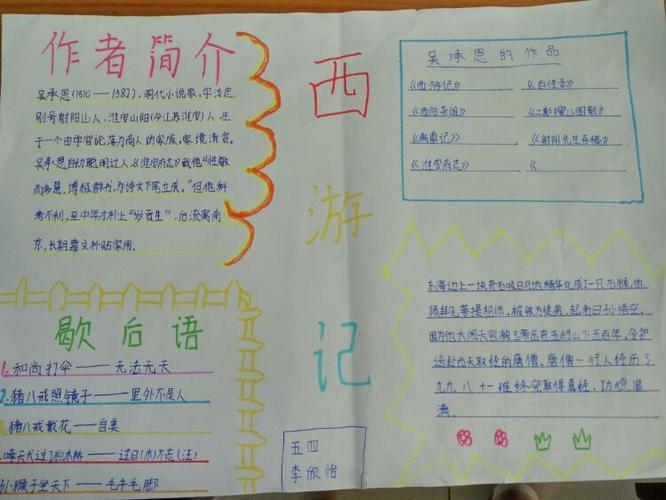 作者简介
吴承恩(1510——1582),明代小说家,字汝忠
别号射阳山人,淮安山阳(今江苏淮安)人,出
于一个由学官沦落为商人的家族,家境清贫。
吴承恩自幼聪明过人,《淮安府志》载他"性敏
而多慧,博极群书,为诗文下笔立成。"但他科
考不利,至中年才补上"岁贡生",后流寓南
京,长期靠文补贴家用。
西
游
记
吴承恩的作品
《西游记》
《西阳杂俎》
《禹鼎记》
《淮安府志》
《二郎搜山图歌》
《射阳先生存稿》
《
歇后语
1.和尚打伞——无法无天
2.猪八戒照镜子——里外不是人
猪八戒散花——自美
猴子坐天下——毛手毛脚
东海边上一块奇石吸日月地精华化成了一只石猴,他
须菩提祖师,被收为徒弟,起名曰孙悟空。
因为他大闹天宫被玉帝压在五行山下五百年,令护
送赴西天取经的唐僧,唐僧一行人经历了
九九八十一难终究取得真经,功德圆
满。
五四
李欣怡